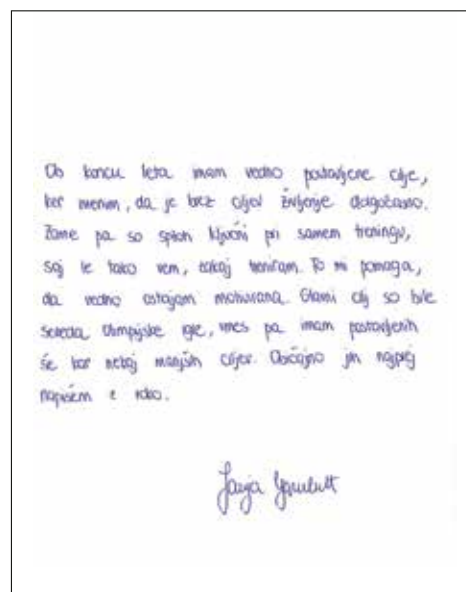 Ob koncu leta imam vedno postavljene cilje,
ker menim, da je brez ciljev življenje dolgočasno.
Zame pa so sploh ključni pri samem treningu,
saj le tako vem, zakaj treniram. To mi pomaga,
da vedno ostajam motivirana. Glavni cilj so bile
seveda olimpijske igre, vmes pa imam postavljenih
še kar nekaj manjših ciljev. Običajno jih najprej
napišem z roko.
Janja Garnbret